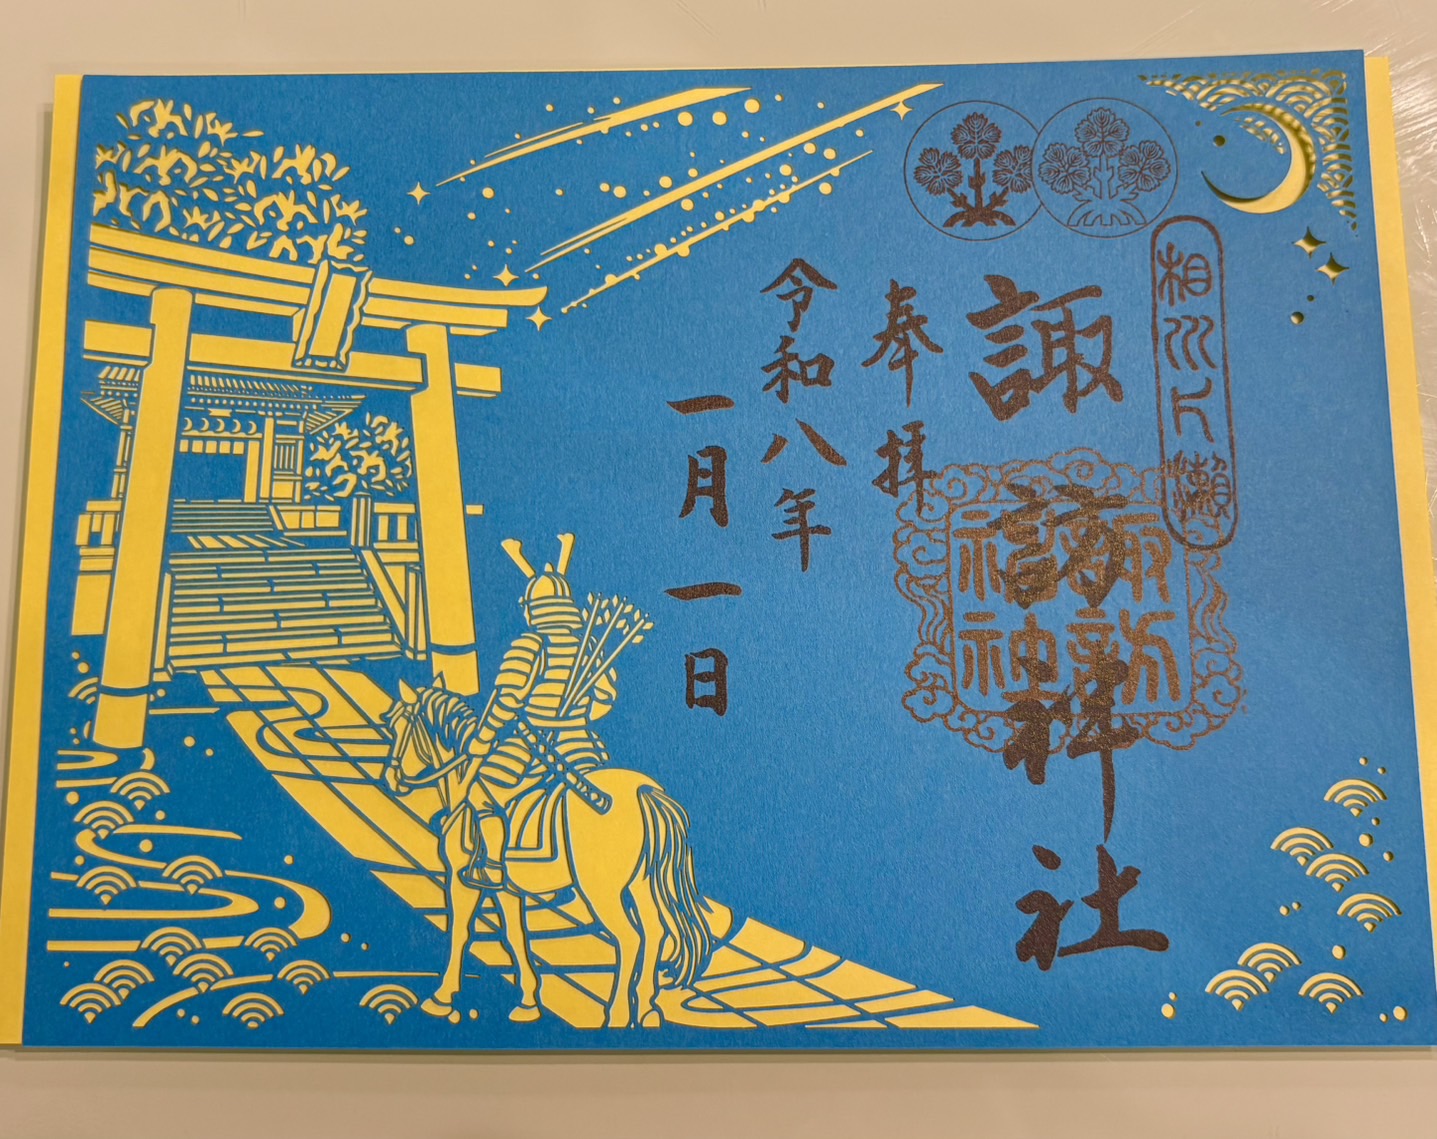 相州片瀬
諏訪神社
諏訪
奉拝
令和八年
一月一日